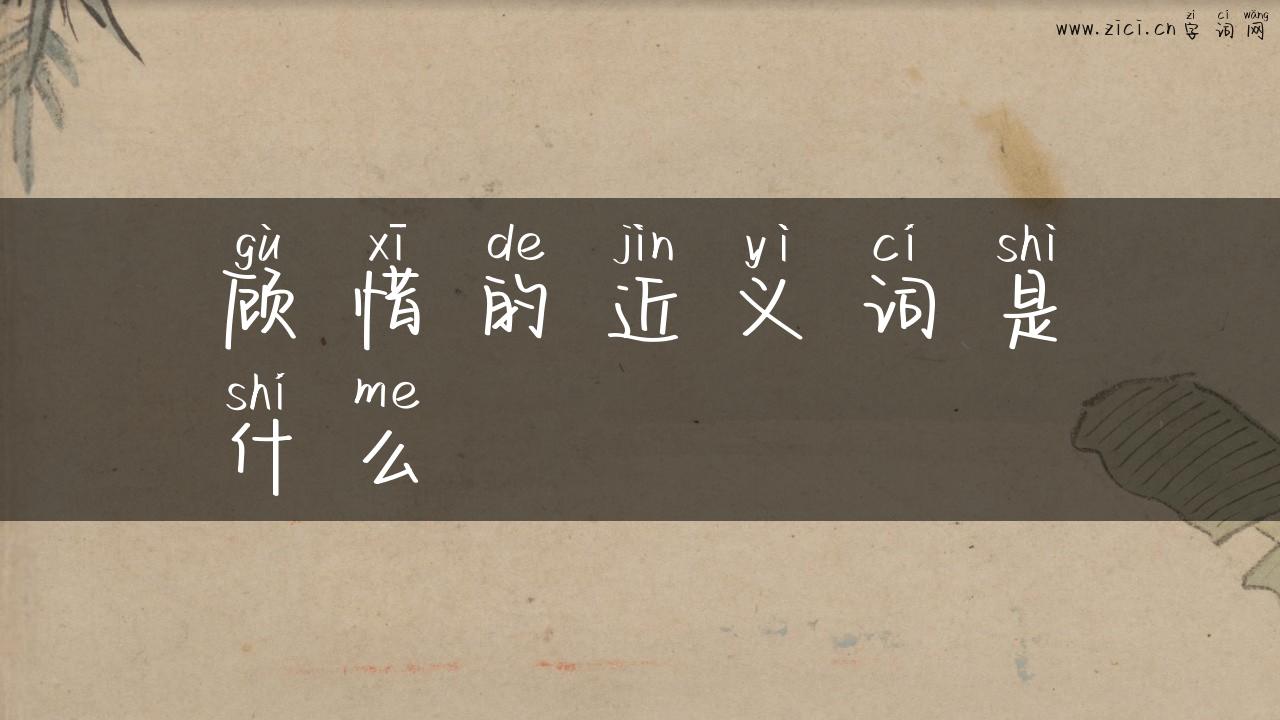 zì cí wǎng
www.zici.cn 字词网
gù xī de jìn yì cí shì
顾惜的近义词是
shí me
什么